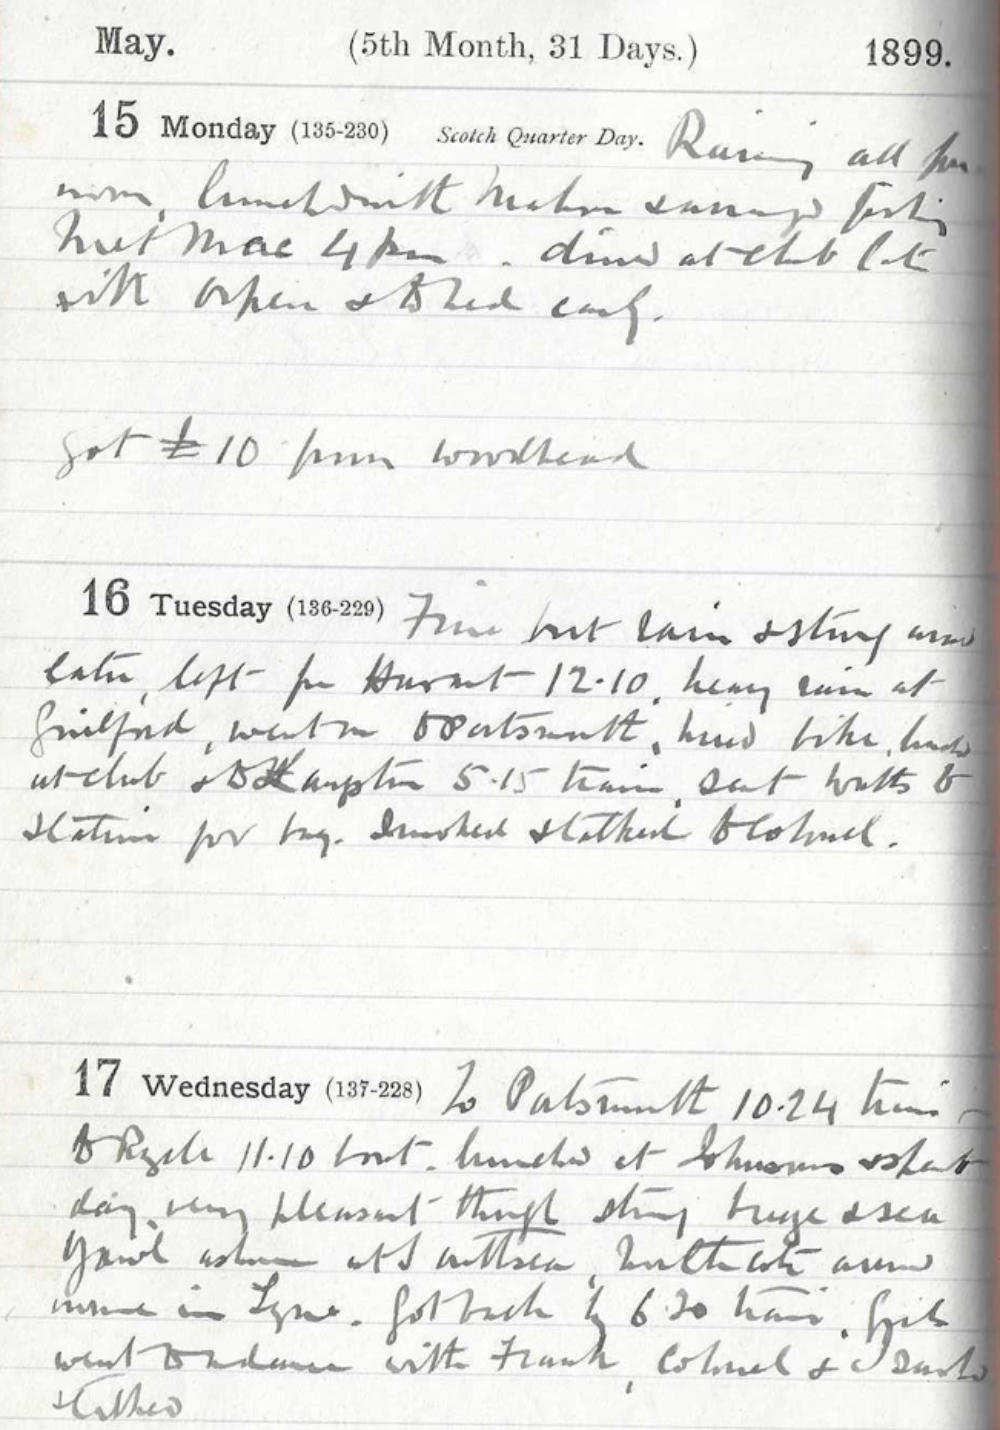 May. (5th Month, 31 Days.) 1899.
15 Monday (135-230) Scotch Quarter Day. Raining all fore
noon, lunched with &
Met Mac 4 pm. dined at club late
with Orpen & to bed early.
got £10 from Woodhead
16 Tuesday (136-229) Fine but rain & strong wind
later, left for Havant 12.10, heavy rain at
Guilford, went on to Portsmouth, hired bike, lunched
at club & to Hampton 5.15 train, sent Watts to
station for bag. Smoked & talked to Colonel.
17 Wednesday (137-228) To Portsmouth 10.24 train
to Ryde 11.10 boat. lunched at Johnsons & spent
day, very pleasant though strong breeze & sea
Yawl ashore at Southsea,
in Tyne. Got back by 6.30 train. Girls
went to a dance with Frank, Colonel & I smoked
& talked